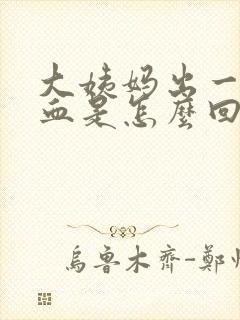 大姨妈出一
血是怎麼回
烏魯木齊-鄭州